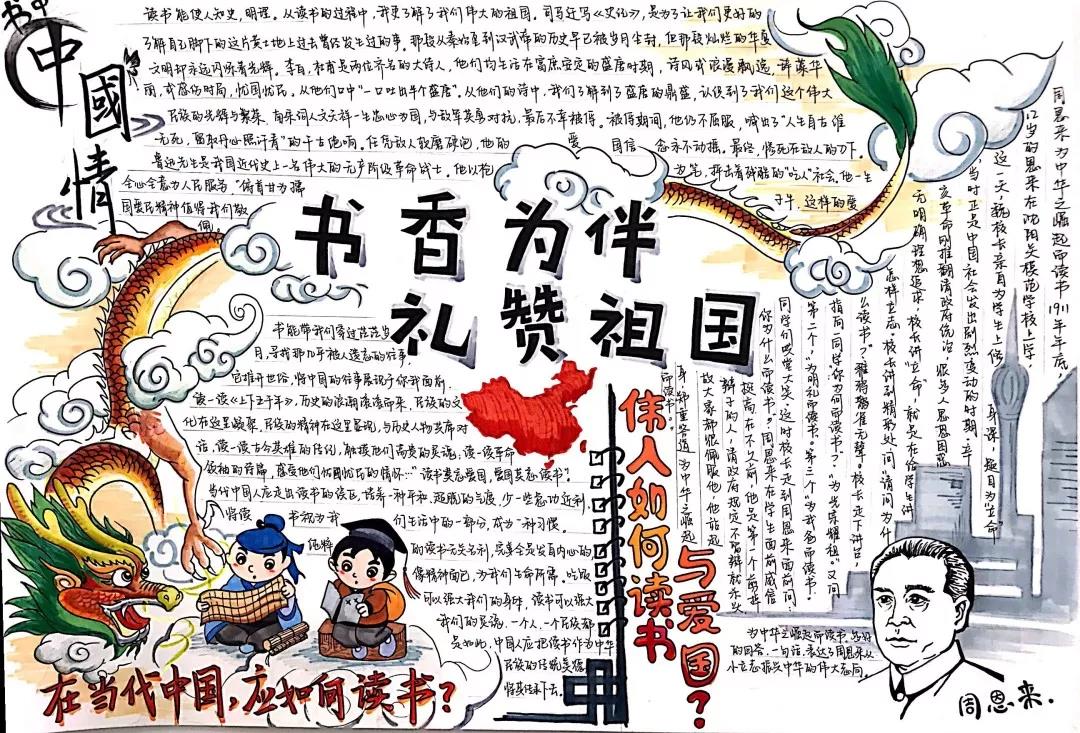 书中
中國情
读书能使人知史，明理。从读书的过程中，我更了解了我们伟大的祖国。司马迁写《史记》，是为了让我们更好的
了解自己脚下的这片黄土地上过去曾经发生过的事。那段从秦始皇到汉武帝的历史早已被岁月尘封，但那段灿烂的华夏
文明却永远闪烁着光辉。李白，杜甫是两位齐名的大诗人，他们均生活在富庶安定的盛唐时期，诗风或浪漫飘逸，辞藻华
丽，或感伤时局，忧国忧民。从他们口中“一口吐出半个盛唐”，从他们的诗中，我们了解到了盛唐的鼎盛，认识到了我们这个伟大
民族的光辉与繁荣。南宋词人文天祥一生忠心为国，与敌军英勇对抗，最后不幸被俘。被俘期间，他仍不屈服，喊出了“人生自古谁
无死，留取丹心照汗青”的千古绝唱。任凭敌人软磨硬泡，他的爱国信念永不动摇。最终，惨死在敌人的刀下。
鲁迅先生是我国近代史上一名伟大的无产阶级革命战士，他以枪为笔，抨击着残酷的“吃人”社会。他一生
全心全意为人民服务“俯首甘为孺子牛，这样的爱
国爱民精神值得我们敬
佩。
书香为伴
礼赞祖国
书能带我们穿过茫茫岁
月，寻找那几乎被人遗忘的往事，
它推开世俗，将中国的往事展现于你我面前。
读一读《上下五千年》，历史的浪潮滚滚而来，民族的文
化在这里凝聚，民族的精神在这里显现，与历史人物共席对
话，读一读古今英雄的传记，触摸他们高贵的灵魂，读一读革命
领袖的诗篇，感受他们忧国忧民的情怀…“读书莫忘爱国，爱国莫忘读书”。
当代中国人应走出读书的误区，培养一种平和，超脱的气度，少一些急功近利，
将读书视为我们生活中的一部分，成为一种习惯。
纯粹的读书无关名利，完全是发自内心的
像精神面包，为我们生命所需，吃饭
可以强大我们的身体，读书可以强大
我们的灵魂，一个人、一个民族都
是如此，中国人应把读书作为中华
民族的传统美德
将其传承下去。
在当代中国，应如何读书？
伟人如何读书
与爱国？
周恩来为中华之崛起而读书1911年年底，
12岁的周恩来在沈阳关模范学校上学，
这一天，魏校长亲自为学生上修身课，题目为生命
当时正是中国社会发生剧烈变动的时期，辛
亥革命刚推翻清政府统治，很多人思想因感
无明确理想追求，校长讲“立命”，就是在给学生讲
怎样立志。校长讲到精彩处问“请问为什
么读书？”雅雅鸦雀无声。校长走下讲台，
指向一同学“你为何而读书？”为光荣耀祖。”又问
第二个，“为明礼而读书。”第三个“为我爸而读书。”
同学们哄堂大笑，这时校长走到周恩来面前问：
“你为什么而读书？”周恩来在学生面前威信
挺高，在不久之前，他是第一个剪掉
辫子的人，清政府规定不留辫就杀头，
故大家都很佩服他，他站起
身，郑重答道“为中华之崛起
而读书。”
为中华之崛起而读书，多好
的回答，一句话，表达了周恩来从
小立志振兴中华的伟大志向。
周恩来.